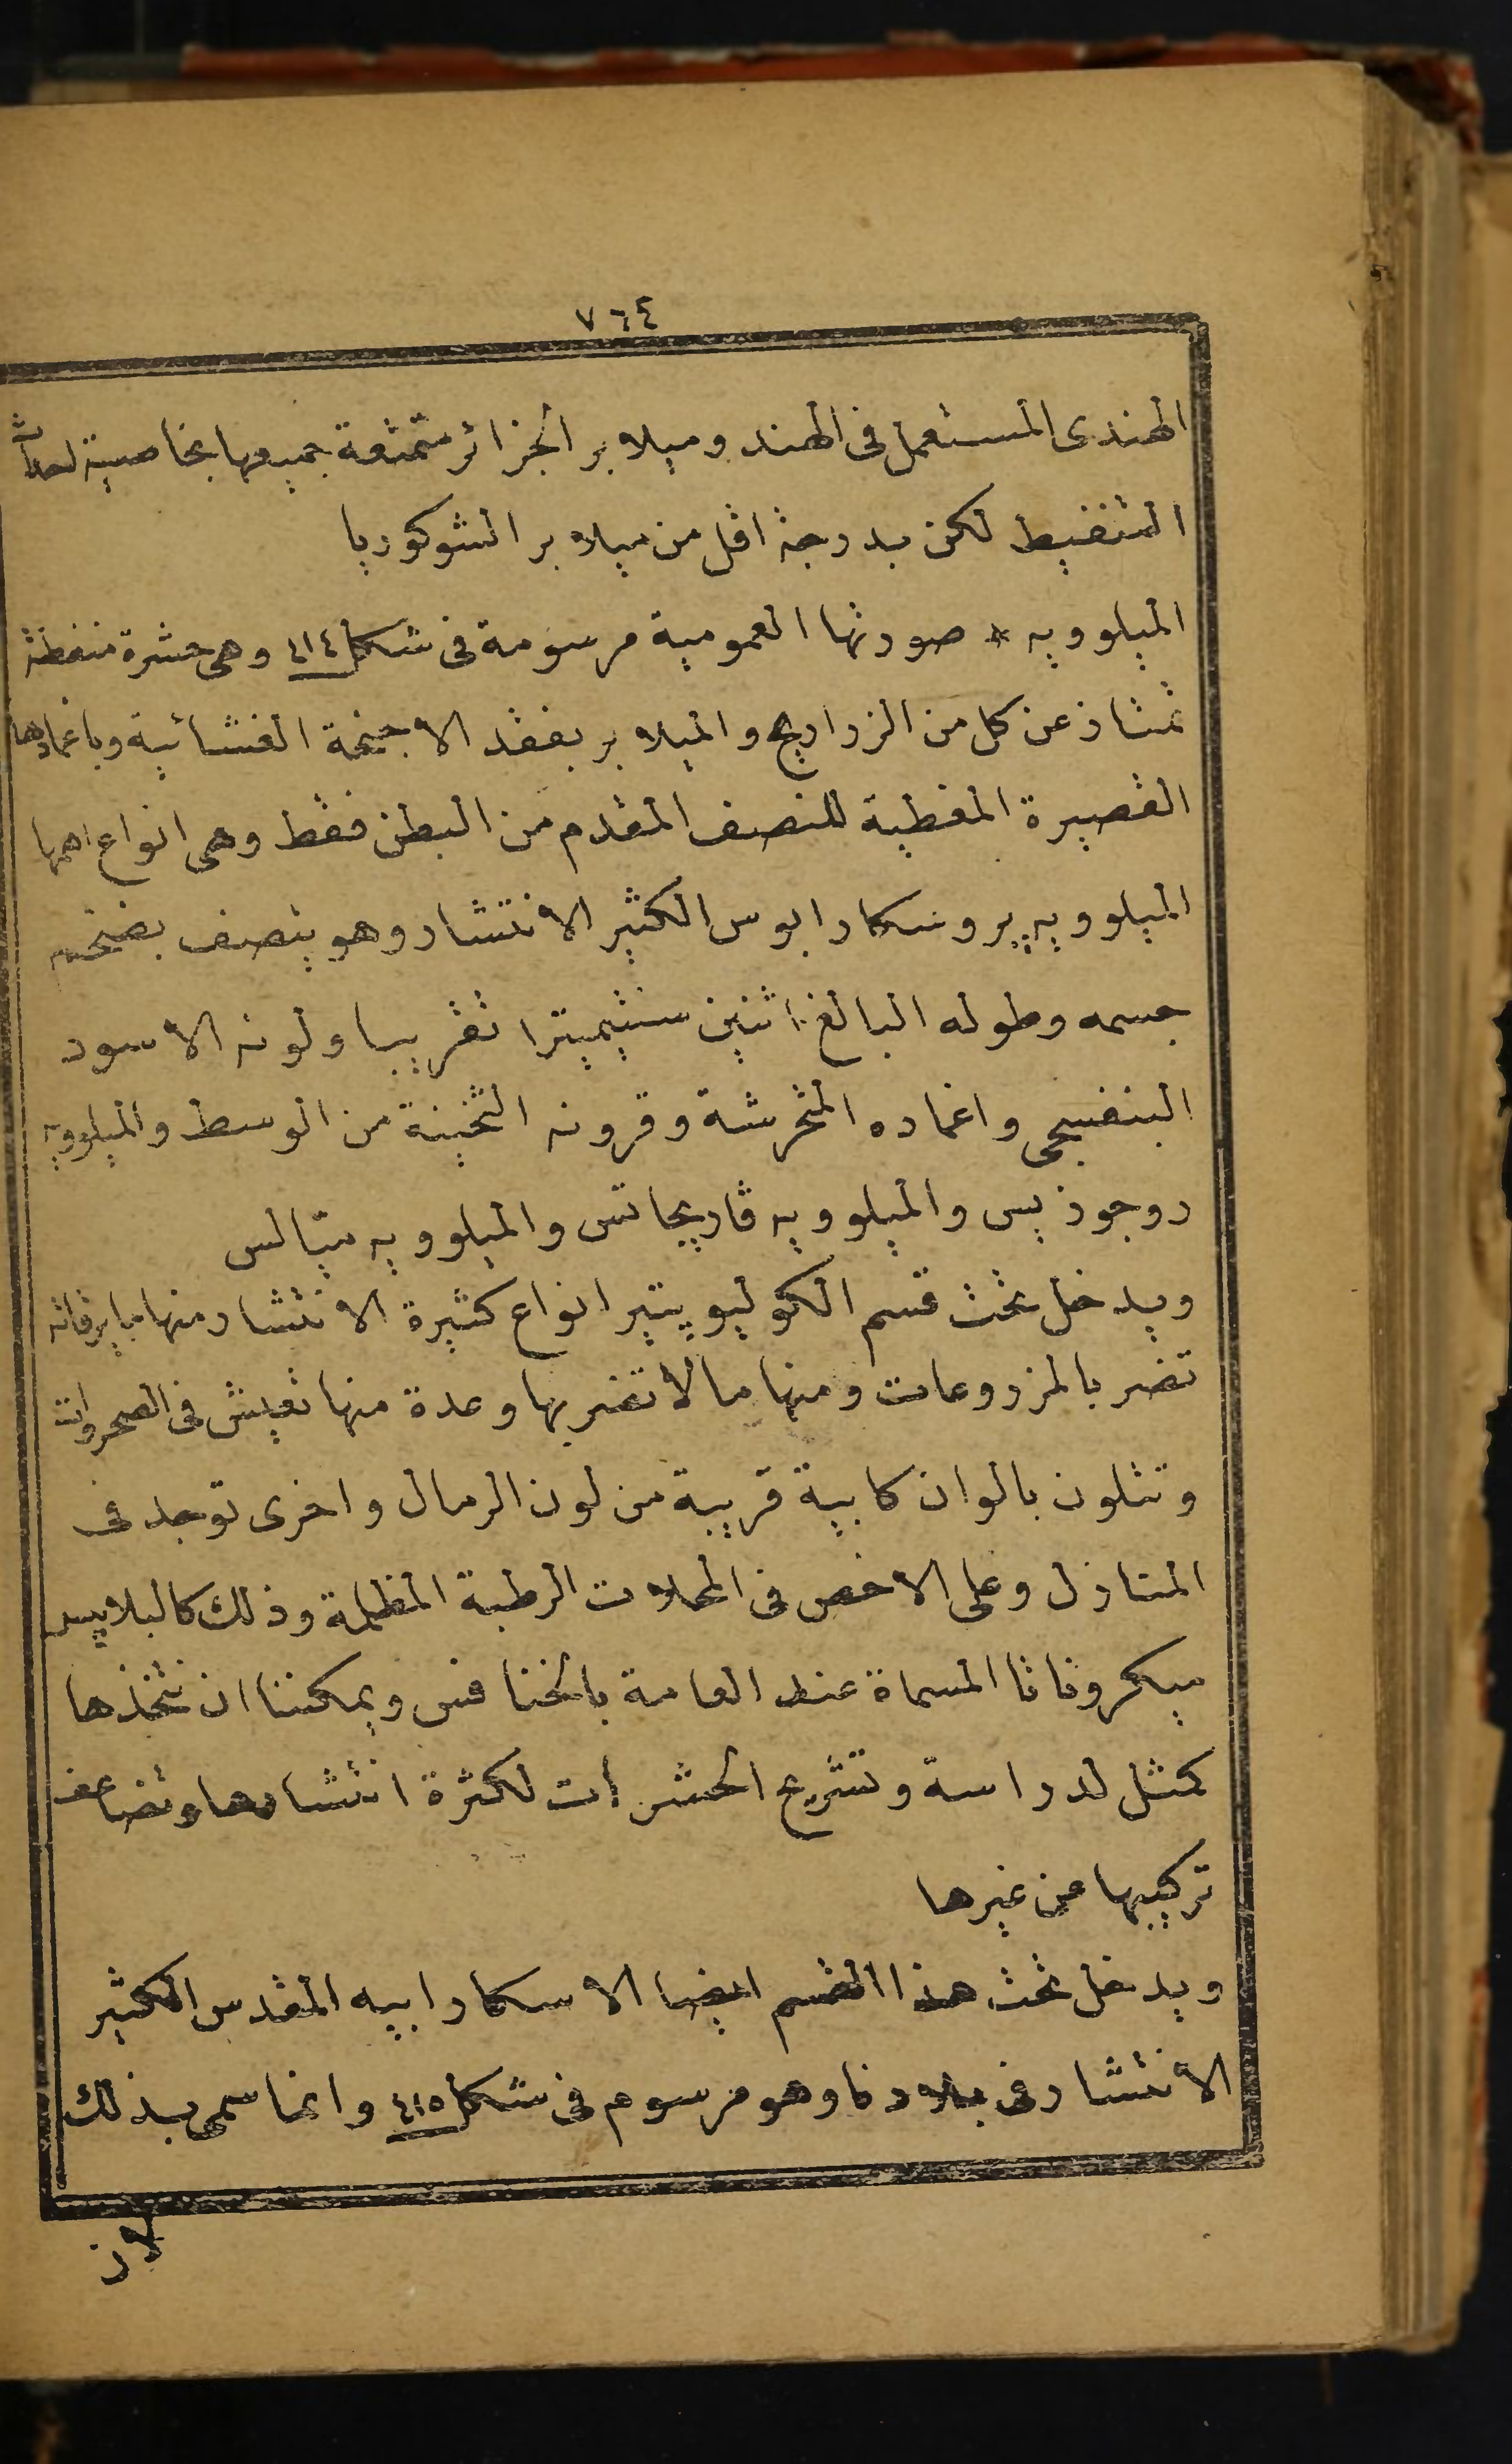 ٧٦٤
الهندى المستعمل فى الهند وميلابر الجزائر متمتعة جميعها بخاصية احداث
التنفيط لكن بدرجة اقل من ميلابر الشوكوريا
الميلوويه * صورتها العمومية مرسومة فى شكل ٤١٤ وهى حشرة منفطة
تمتاز عن كل من الزراريح والميلابر بفقد الاجنحة الغشائية وباغمادها
القصيرة المغطية للنصف المقدم من البطن فقط وهى انواع اهمها
الميلوويه پروسكارابوس الكثير الانتشار وهو يتصف بضخم
جسمه وطوله البالغ اثنين سنتيميترا تقريبا ولونه الاسود
البنفسجى واغماده المخرشة وقرونه الثخينة من الوسط والميلوويه
روجوزيس والميلوويه ڤاريجاتس والميلوويه متالس
ويدخل تحت قسم الكوليوپتير انواع كثيرة الانتشار منها ما يرقاته
تضر بالمزروعات ومنها ما لا تضر بها وعدة منها تعيش فى الصحروات
وتتلون بالوان كابية قريبة من لون الرمال واخرى توجد فى
المنازل وعلى الاخص فى المحلات الرطبة المظلمة وذلك كالبلاپس
ميكروناتا المسماة عند العامة بالخنافس ويمكننا ان نتخذها
كمثل لدراسة وتشريح الحشرات لكثرة انتشارها وتضاعف
تركيبها عن غيرها
ويدخل تحت هذا القسم ايضا الاسكارابيه المقدس الكثير
الانتشار فى بلادنا وهو مرسوم فى شكل ٤١٥ وانما سمى بذلك
لان